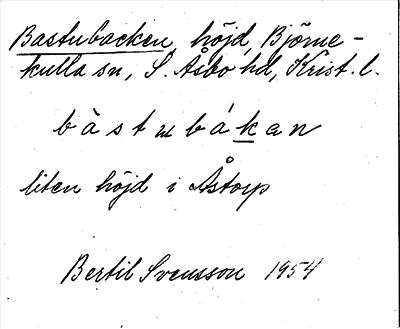 Bastubacken, höjd, Björne-
kulla sn, S. Åsbo hd, Krist. l.
bàstubákan
liten höjd i Åstorp
Bertil Svensson 1954